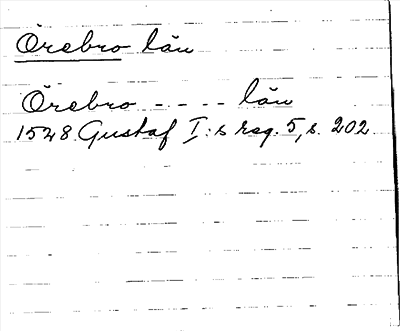 Örebro län
Örebro - - - - län
1548 Gustaf I:s reg. 5, s. 202